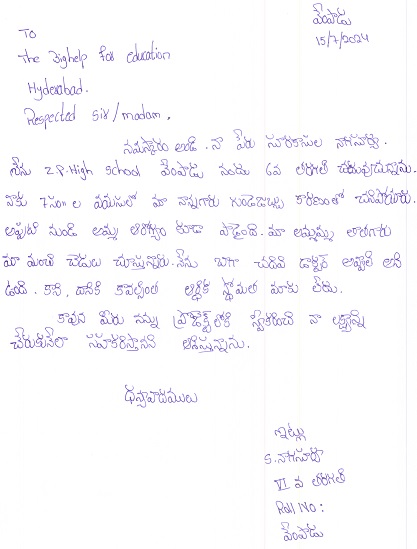 వేంపాడు
15/7/2024
To
The Bighelp for education
Hyderabad.
Respected Sir/madam,
నమస్కారం అండి. నా పేరు సూరకాసుల నాగసూర్య.
నేను Z.P.High School వేంపాడు నందు 6వ తరగతి చదువుచున్నాను.
నాకు 7సం॥ల వయసులో మా నాన్నగారు గుండెజబ్బు కారణంతో చనిపోయారు.
అప్పటి నుండి అమ్మ ఆరోగ్యం కూడా పాడైంది. మా అమ్మమ్మ తాతగారు
మా మంచి చెడులు చూస్తున్నారు. నేను బాగా చదివి డాక్టర్ అవ్వాలి అని
ఉంది. కాని, దానికి కావల్సింత ఆర్థిక స్థోమత మాకు లేదు.
కావున మీరు నన్ను ప్రాజెక్ట్‌లోకి స్వీకరించి నా లక్ష్యాన్ని
చేరుకునేలా సహకరిస్తారని ఆశిస్తున్నాను.
ధన్యవాదములు
ఇట్లు
S.నాగసూర్య
VI వ తరగతి
Roll No:
వేంపాడు